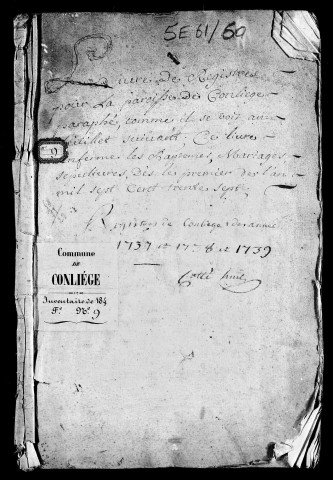 5E61/60
Livre De Registres
pour La paroisse De Conliege
paraphé, comme il se vois au
feuillet suivant, Ce livre
renferme les Baptemes, Mariages
sepultures, Dès le premier de l'an
mil sept Cent trente sept
9
Registres de Conliege des années
1737 et 1738 et 1739
Cotté huit
Commune
DE
CONLIÉGE
Inventaire de 184
F. No. 9